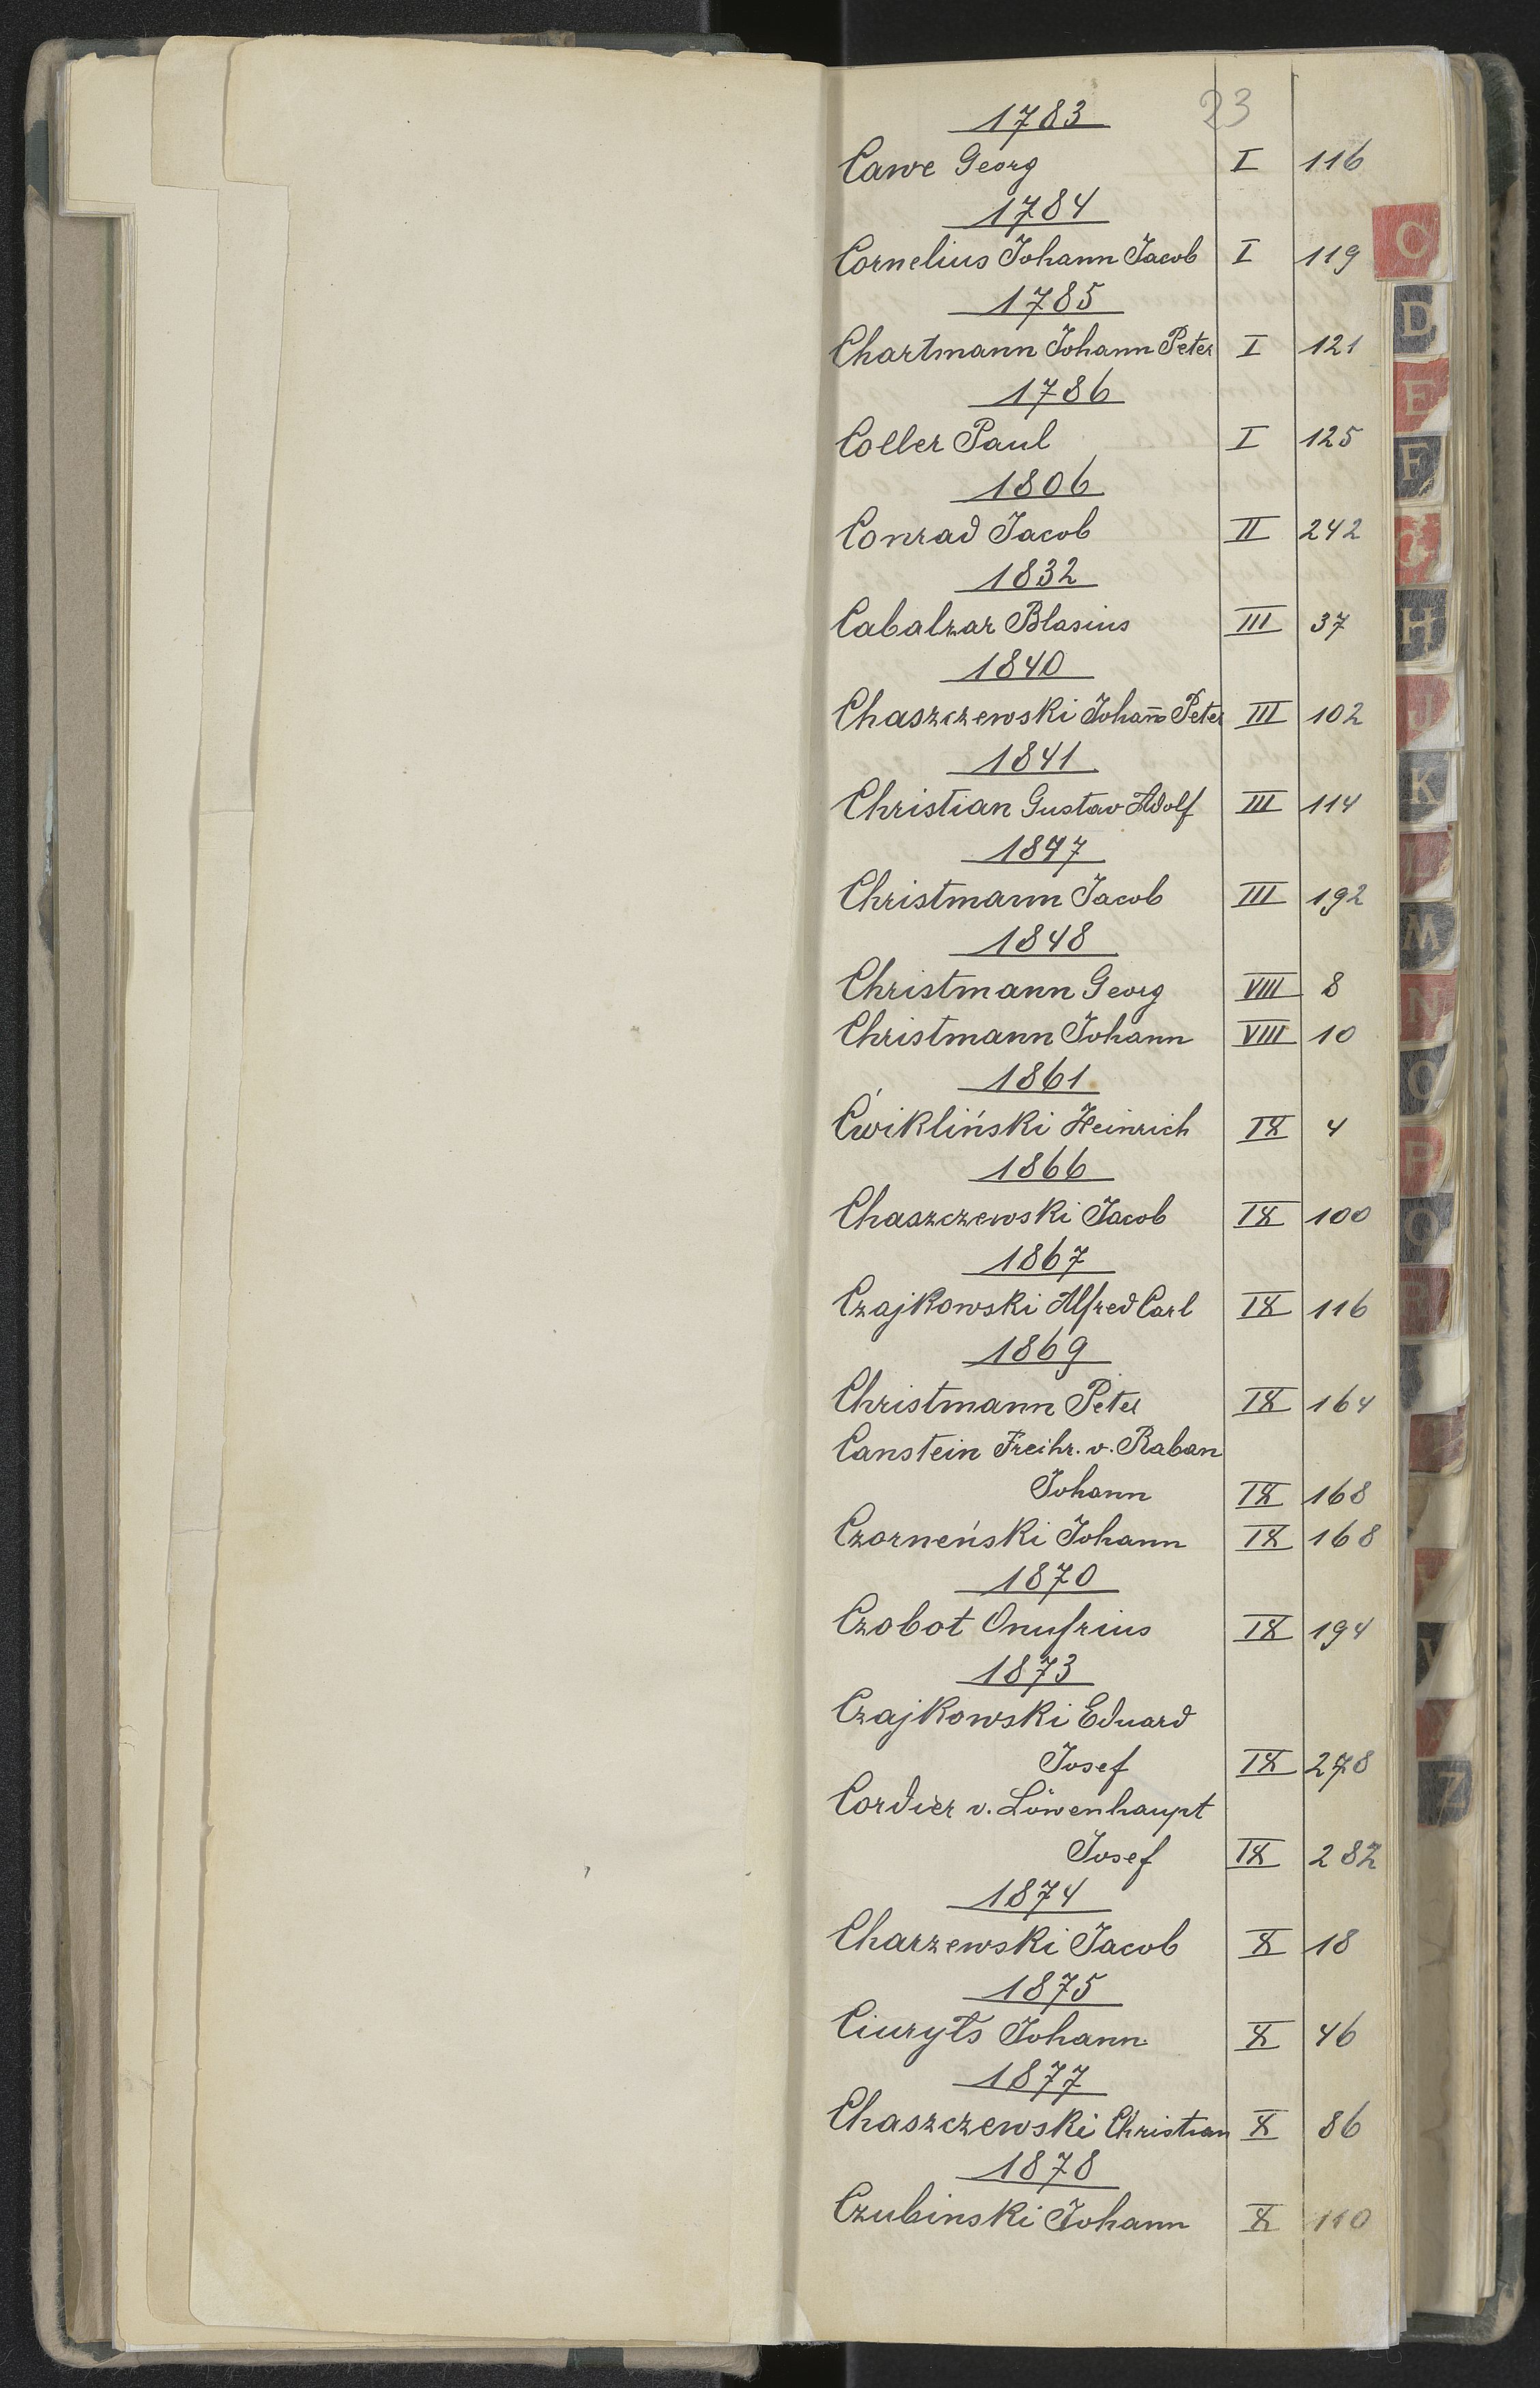 23
1783
Cawe Georg I 116
1784
Cornelius Johann Jacob I 119
1785
Chartmann Johann Peter I 121
1786
Coller Paul I 125
1806
Conrad Jacob II 242
1832
Cabalzar Blasius III 37
1840
Chaszczewski Johañ Peter III 102
1841
Christian Gustav Adolf III 114
1847
Christmann Jacob III 192
1848
Christmann Georg VIII 8
Christmann Johann VIII 10
1861
Ćwikliński Heinrich IX 4
1866
Chaszczewski Jacob IX 100
1867
Czajkowski Alfred Carl IX 116
1869
Christmann Peter IX 164
Canstein Freihr. v. Raban
Johann IX 168
Czorneński Johann IX 168
1870
Czobot Onufrius IX 194
1873
Czajkowski Eduard
Josef IX 278
Cordier v. Löwenhaupt
Josef IX 282
1874
Charzewski Jacob X 18
1875
Ciuryts Johann X 46
1877
Chaszczewski Christian X 86
1878
Czubinski Johann X 110
C
D
E
F
H
J
K
L
M
N
O
P
Q
R
V
Z